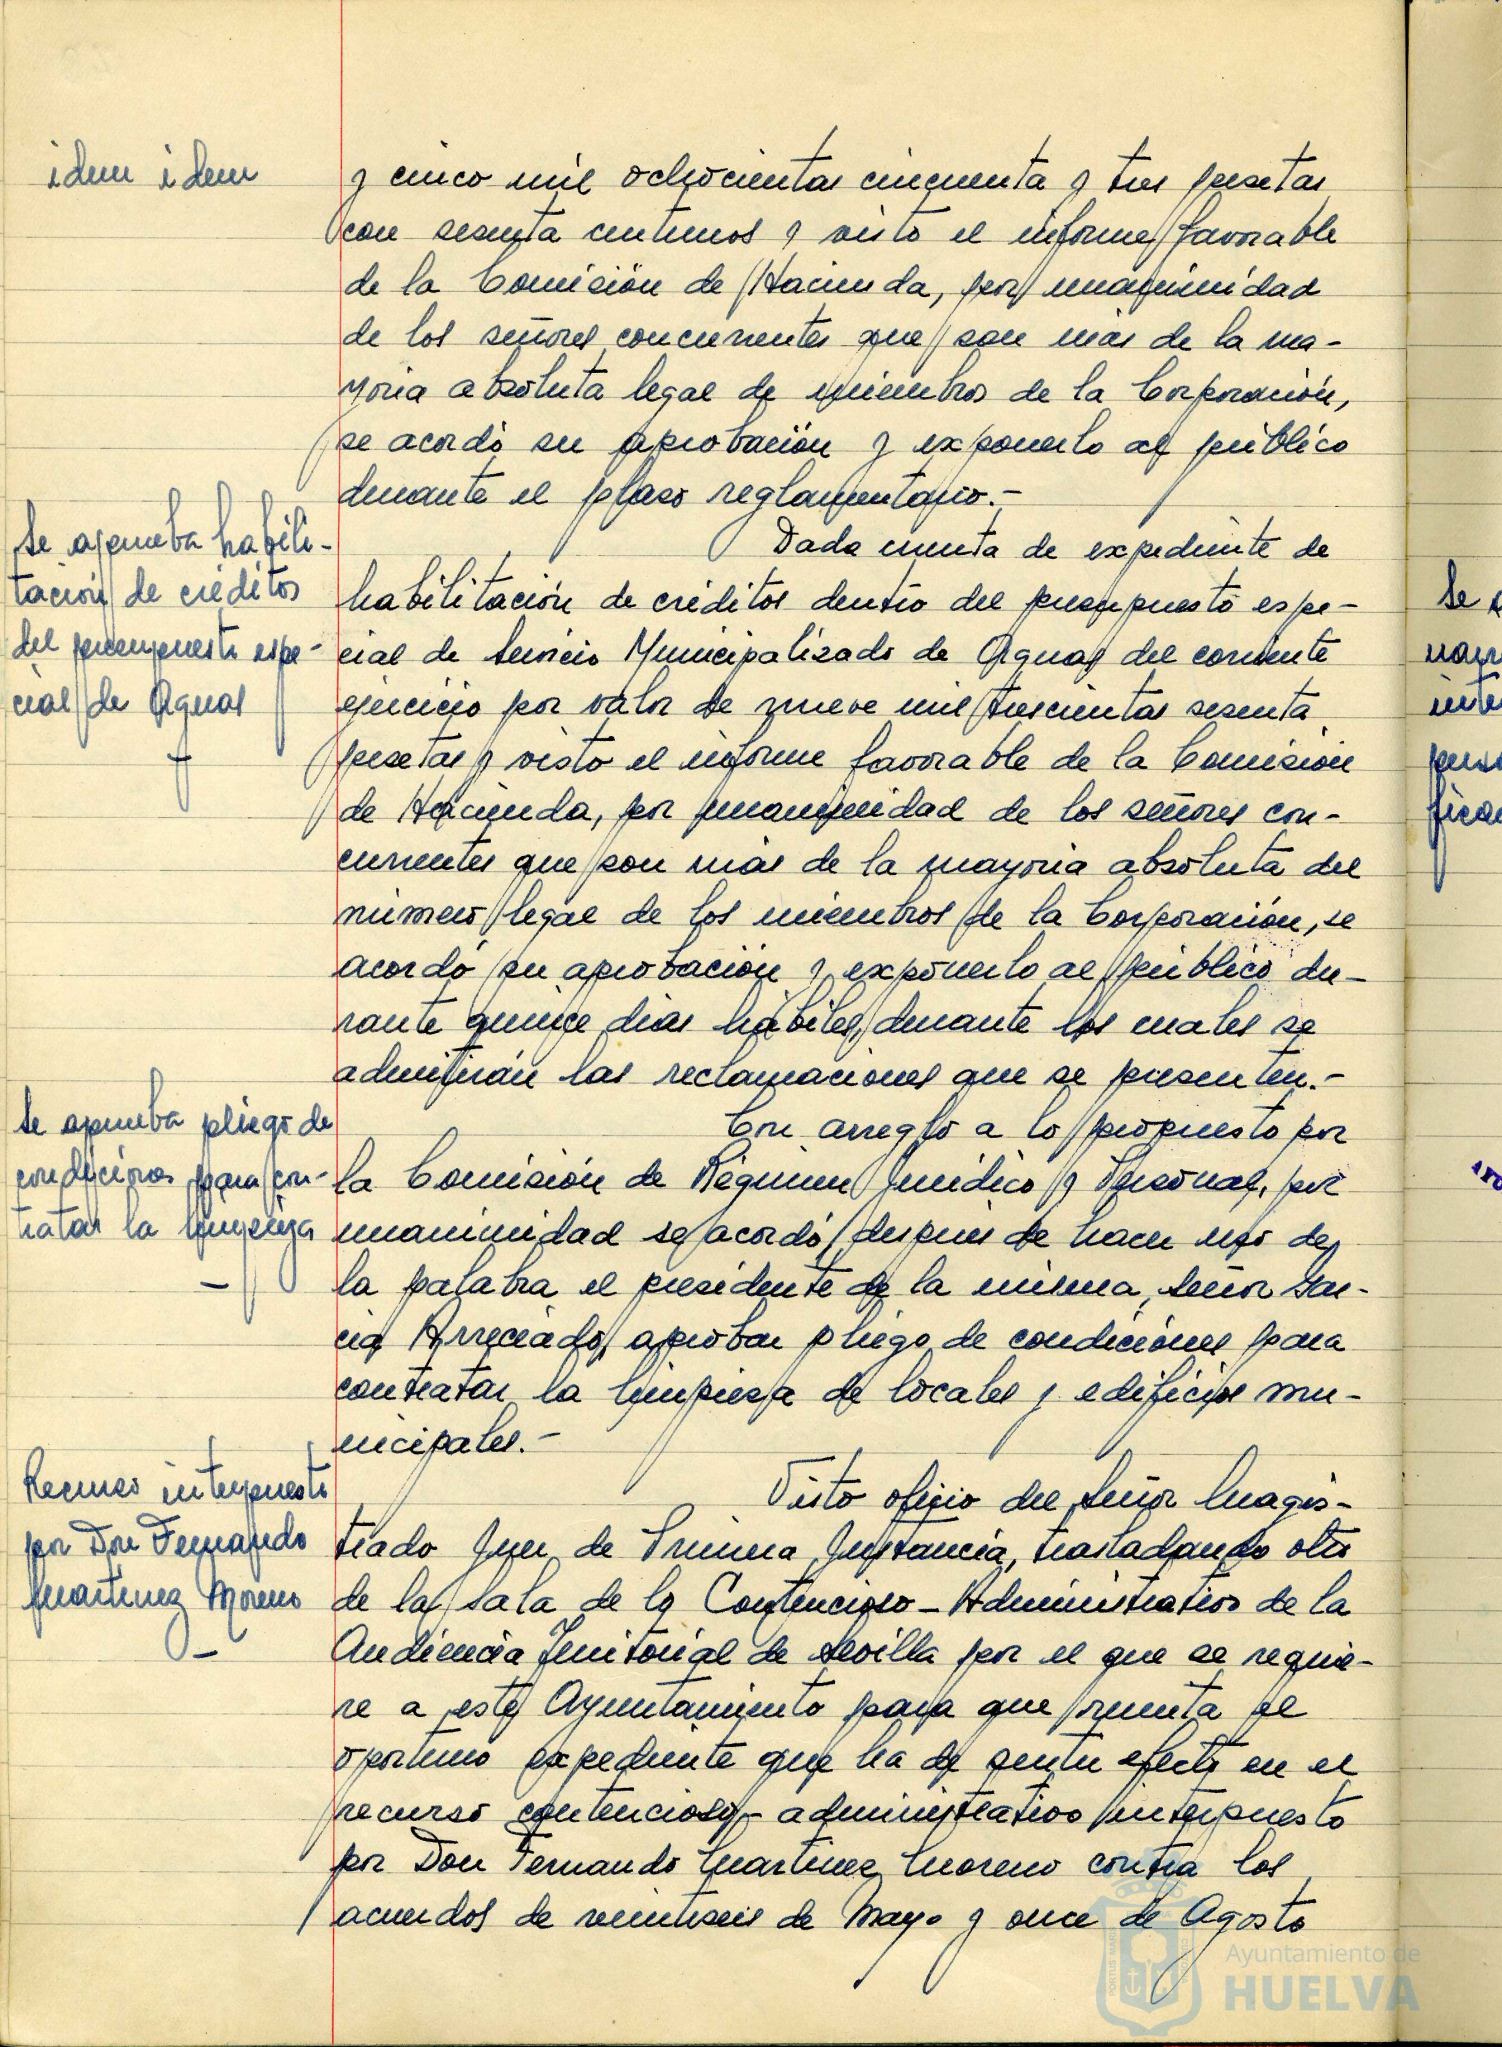 idem idem
y cinco mil ochocientas cincuenta y tres pesetas
con sesenta centimos y visto el informe favorable
de la Comisión de Hacienda, por unanimidad
de los señores concurrentes que son más de la ma-
yoria absoluta legal de miembros de la Corporación,
se acordó su aprobación y exponerlo al público
durante el plazo reglamentario.-
Se aprueba habili-
tación de créditos
del presupuesto espe-
cial de Aguas
Dada cuenta de expediente de
habilitación de créditos dentro del presupuesto espe-
cial de Servicio Municipalizado de Aguas del corriente
ejercicio por valor de nueve mil trescientas sesenta
pesetas y visto el informe favorable de la Comisión
de Hacienda, por unanimidad de los señores con-
currentes que son más de la mayoria absoluta del
número legal de los miembros de la Corporación, se
acordó su aprobación y exponerlo al público du-
rante quince dias hábiles, durante los cuales se
admitirán las reclamaciones que se presenten.-
Se aprueba pliego de
condiciones para con-
tratar la limpieza
Con arreglo a lo propuesto por
la Comisión de Régimen Juridico y Personal, por
unanimidad se acordó, después de hacer uso de
la palabra el presidente de la misma, Señor Gar-
cia Arreciado, aprobar pliego de condiciones para
contratar la limpieza de locales y edificios mu-
nicipales.-
Recurso interpuesto
por Don Fernando
Martinez Moreno
Visto oficio del Señor Magis-
trado Juez de Primera Instancia, trasladando otro
de la Sala de lo Contencioso-Administrativo de la
Audiencia Territorial de Sevilla por el que se requie-
re a este Ayuntamiento para que remita el
oportuno expediente que ha de surtir efecto en el
recurso contencioso-administrativo interpuesto
por Don Fernando Martinez Moreno contra los
acuerdos de veintiseis de Mayo y once de Agosto
Ayuntamiento de
HUELVA